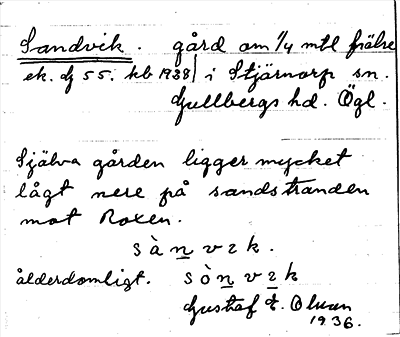 Sandvik. gård om 1/4 mtl frälse
ek. bl 55. kb 1938 i Stjärnorp sn.
Gullbergs hd. Ögl.
Själva gården ligger mycket
lågt nere på sandstranden
mot Roxen.
sànvɪk.
ålderdomligt. sònvɪk
Gustaf
1936.